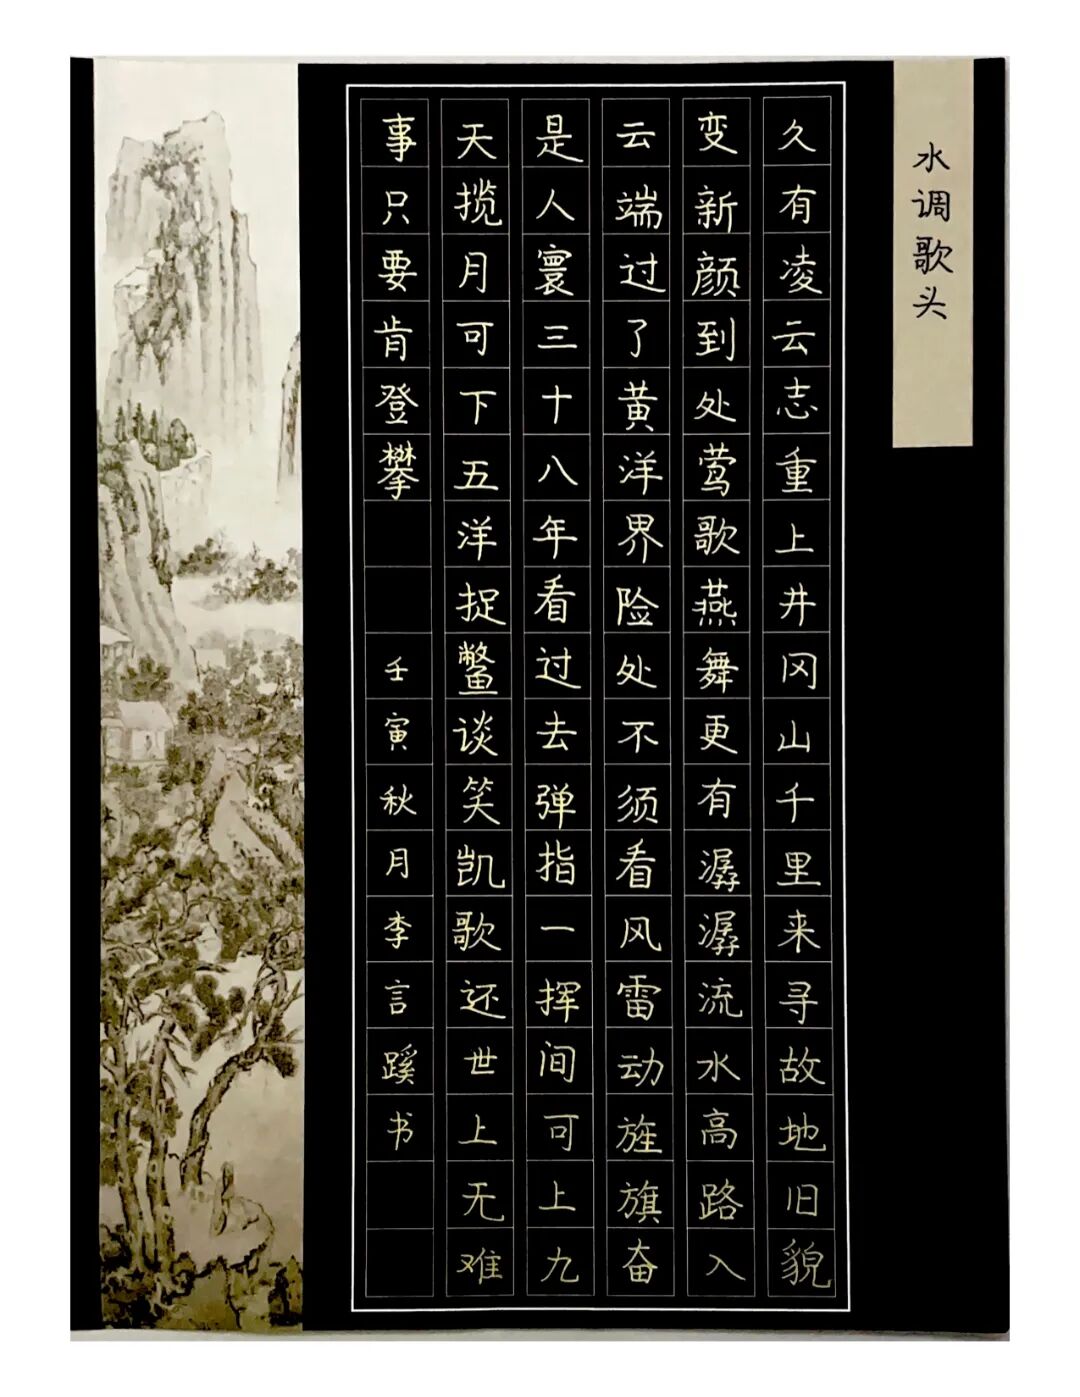 水调歌头
久有凌云志重上井冈山千里来寻故地旧貌
变新颜到处莺歌燕舞更有潺潺流水高路入
云端过了黄洋界险处不须看风雷动旌旗奋
是人寰三十八年看过去弹指一挥间可上九
天揽月可下五洋捉鳖谈笑凯歌还世上无难
事只要肯登攀 壬寅秋月李言蹊书